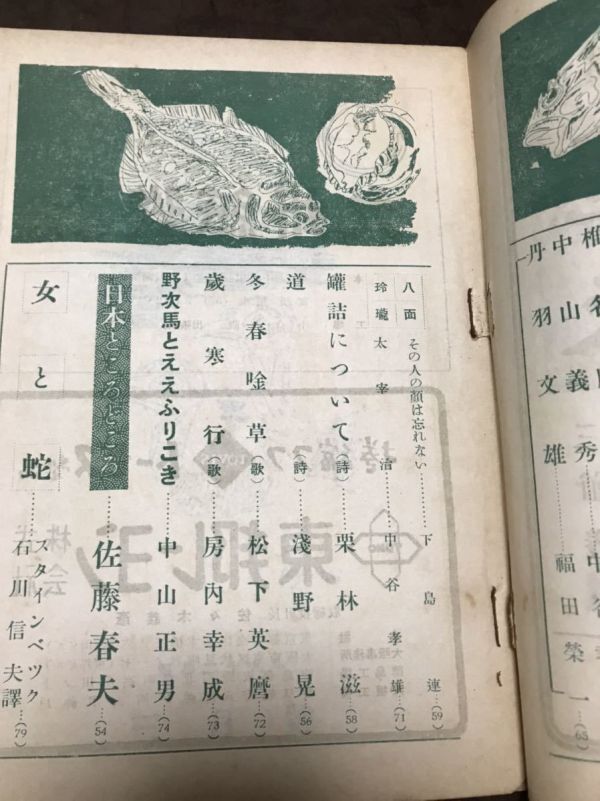 中山義秀
丹羽文雄
福田榮一…(65)
八面玲瓏
その人の顔は忘れない……下島連…(59)
太宰治……中谷孝雄…(71)
罐詰について(詩)…栗林滋…(58)
道……(詩)…淺野晃…(56)
冬春唫草(歌)…松下英麿…(72)
歳寒行(歌)…房内幸成…(73)
野次馬とええふりこき…中山正男…(74)
日本ところどころ……佐藤春夫…(54)
女と蛇……スタインベツク
石川信夫譯…(79)